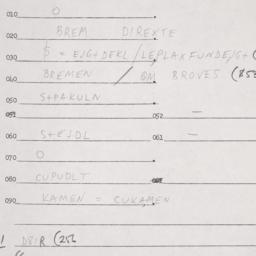 010. O
020. BREM DIREKTE
030. $ = E/G+DEKL /LEPLAXFUNDE/G+(
040. BREMEN / BM BROVES (85
050. S+PAKULN
051 052 —
060. S+EJDL 061 —
070. O
080. CUPUDLT
090. KAMEN = CUKAMEN
1 D81R (256